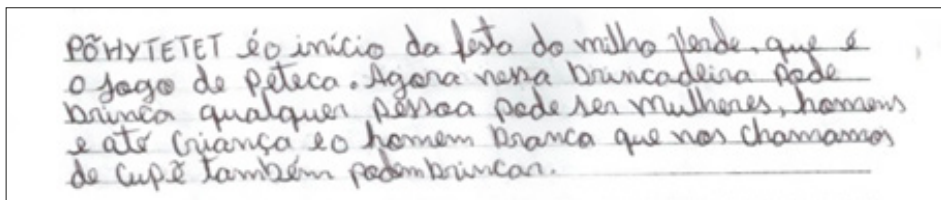 PÕHYTETET éo início da festa do milho verde, que é
o jogo de peteca. Agora nessa brincadeira pode
brinca qualquer pessoa pode ser mulheres, homens
e até criança eo homem branca que nos chamamos
de cupẽ também podem brincar.